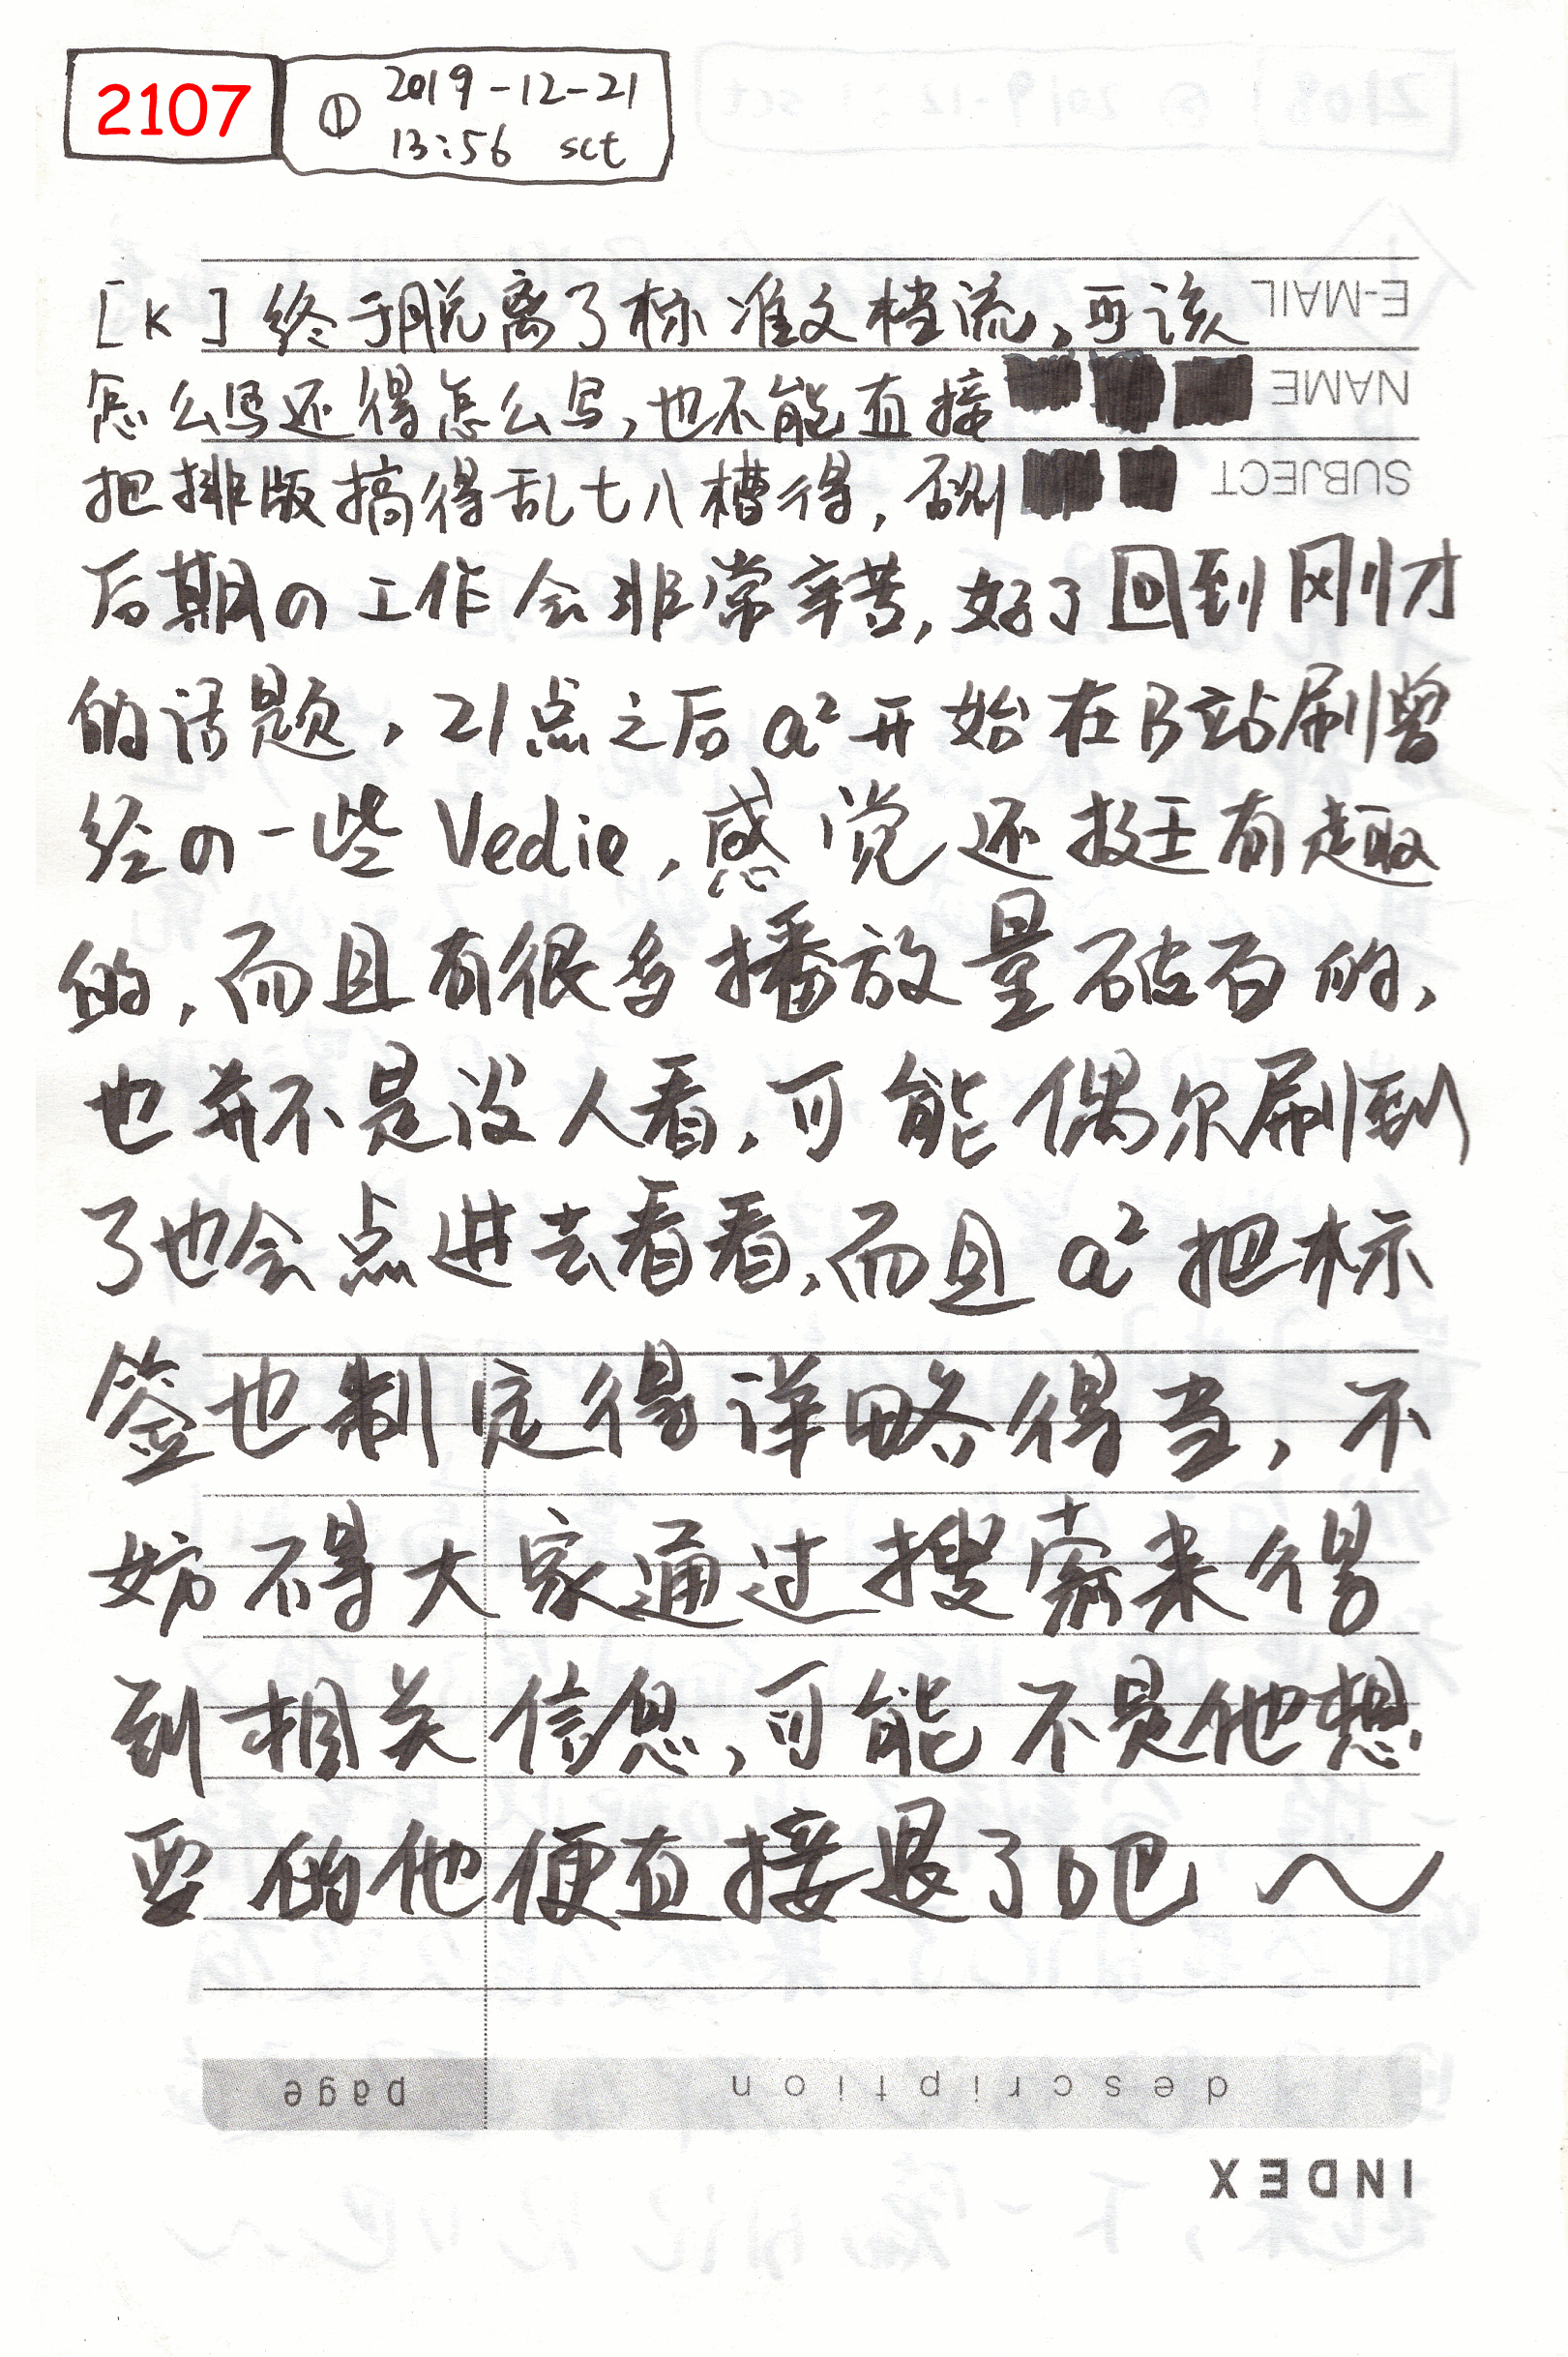 2107
① 2019-12-21
13:56 sct
[K] 终于脱离了标准文档流,可该
E-MAIL
怎么写还得怎么写,也不能直接
NAME
把排版搞得乱七八槽得,否则
SUBJECT
后期の工作会非常辛苦,好了回到刚才
的话题,21点之后a²开始在B站刷曾
经の一些Vedio,感觉还挺有趣
的,而且有很多播放量破百的,
也并不是没人看,可能偶尔刷到
了也会点进去看看,而且a²把标
签也制定得详略得当,不
妨不得大家通过搜索来得
到相关信息,可能不是他想
要的他便直接退了吧~
page
description
INDEX